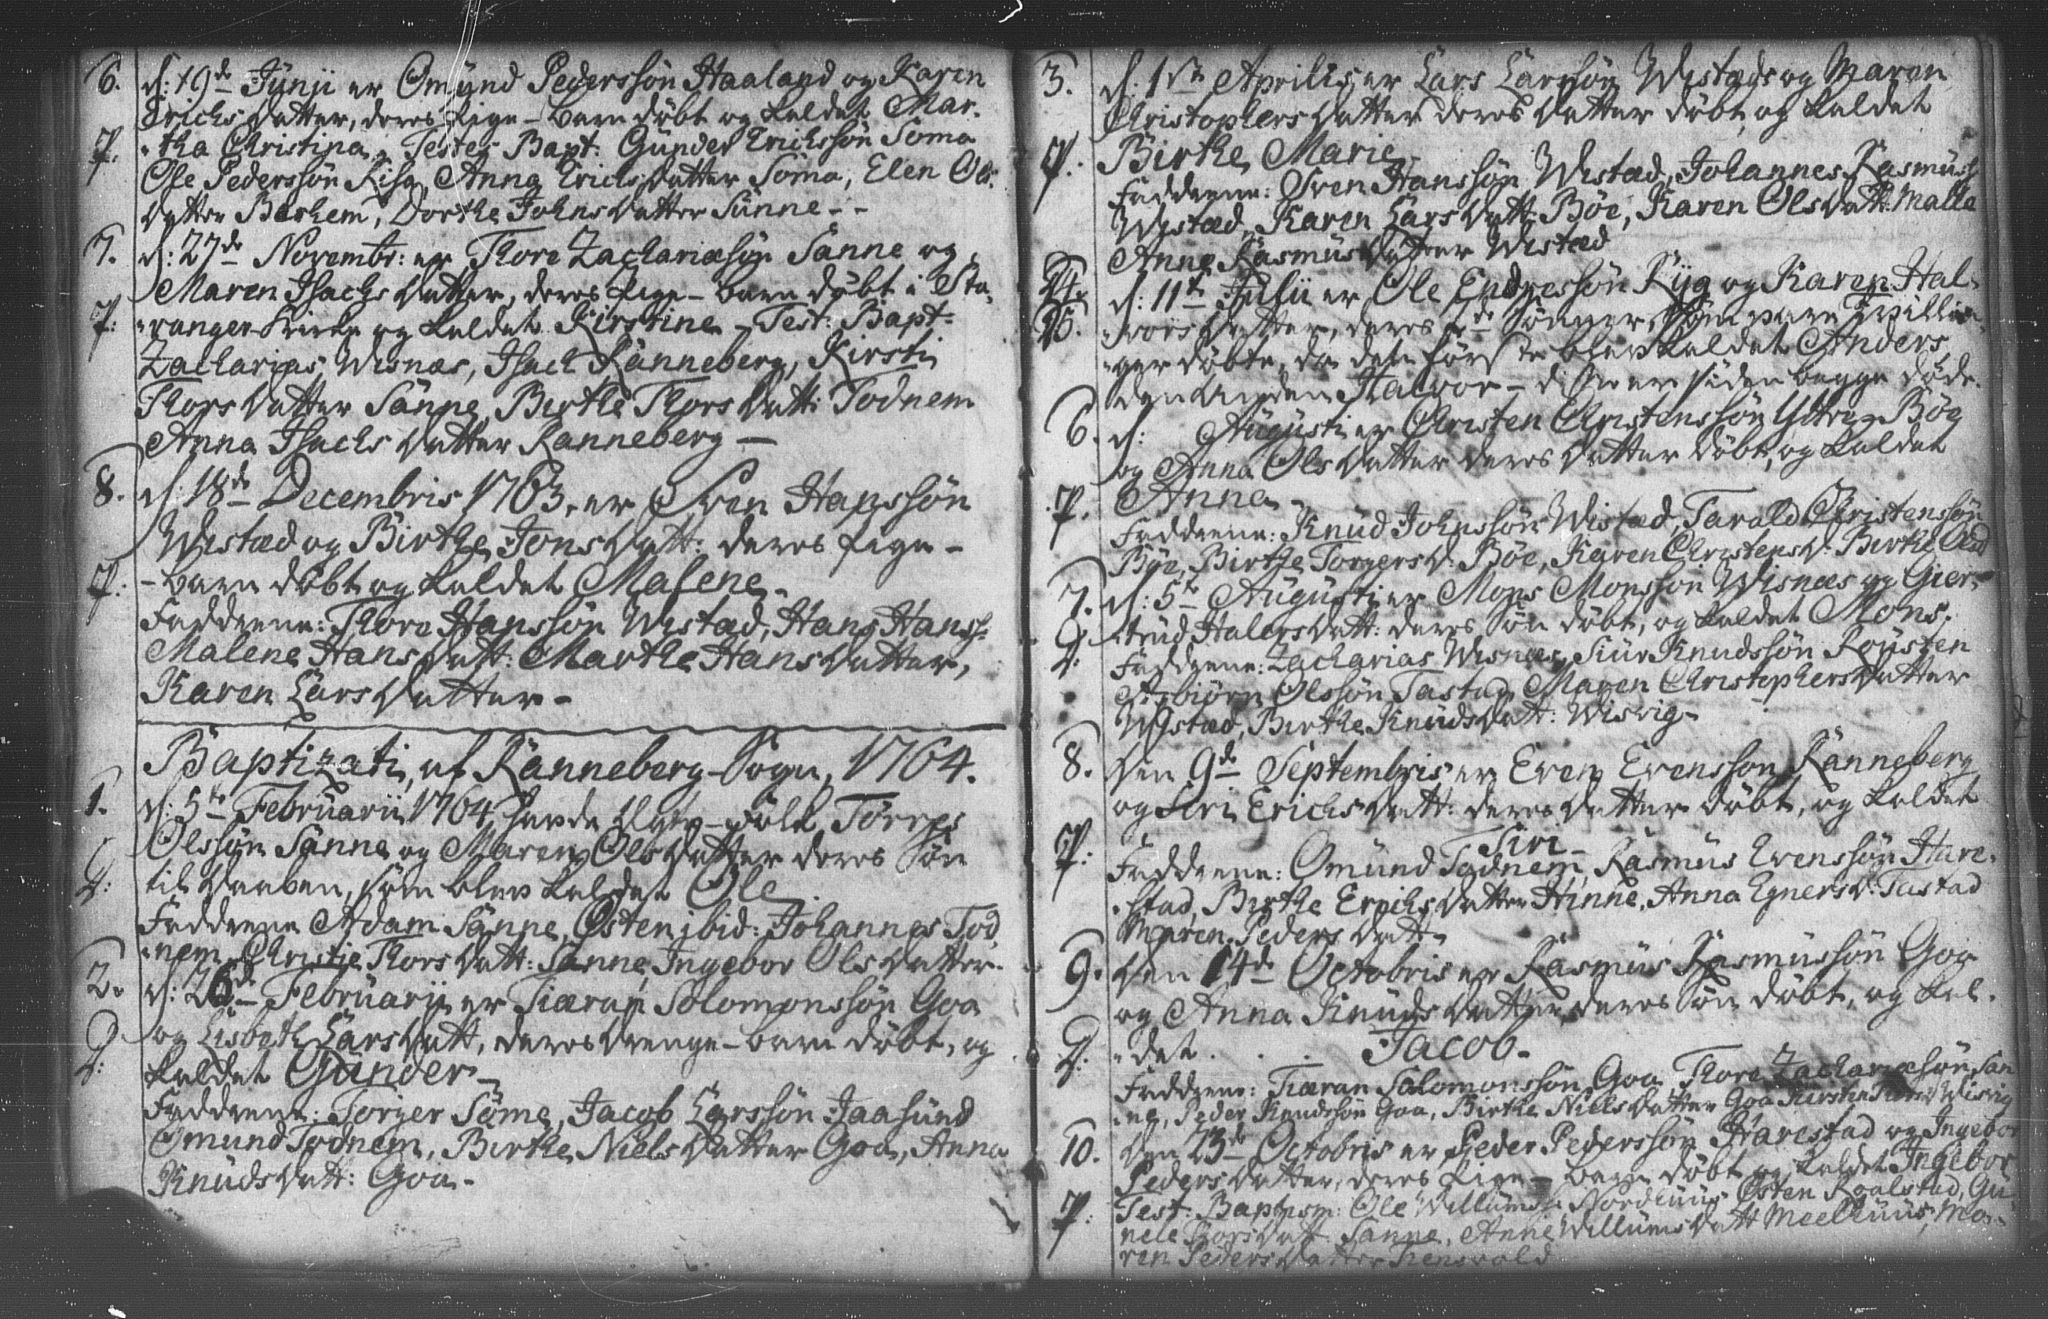 6. d: 19de Junii er Omund Pederssön Haaland og Karen
Erichs Datter, deres Pige-barn döbt og kaldet Mar-
P. tha Christina. Testes Bapt: Gunder Erichssön Soma
Ole Pederssön Risa, Anna Erichs Datter Soma, Elen Ols
Datter Berhem, Dorthe Johns Datter Sunne --
7. d: 27de Novembr: er Thore Zachariæsön Sanne og
Maren Isachs Datter, deres Pige-barn döbt i Sta-
P: vanger Kirke og kaldet Kirstine. Test: Bapt:
Zacharias Wisnæs, Isach Ranneberg, Kirsti
Thors Datter Sanne, Birthe Thors Datt: Todnem
Anna Isachs Datter Ranneberg —
8. d. 18de Decembris 1763, er Sven Hanssön
Wistæd og Birthe Jons Datt: deres Pige-
P: -barn döbt og kaldet Malene.
Fadderne: Thore Hanssön Wistæd, Hans Hanss:
Malene Hans Datt: Marthe Hans Datter,
Karen Lars Datter -
Baptizati, af Ranneberg-Sogn, 1764.
1. d: 5te Februarii 1764, havde Törres
Olssön Sanne og Maren Ols Datter deres Sön
D: til Daaben, som blev kaldet Ole
Fadderne Adam Sanne, Östen ibid: Johannes Tod
nem Christie Thors Datt: Sanne, Ingebor Ols Datter.
2. d: 26de Februarii er Tiæran Solomonssön Goa
og Lisbeth Lars Datt, deres Drenge-barn döbt, og
D: kaldet Gunder -
Fadderne: Torger Söme, Jacob Larssön Jaasund
Omund Todnem, Birthe Niels Datter Goa, Anna
Knuds Datt: Goa.
3. d: 1ste Aprilis er Lars Larssön Wistæd og Maren
Christophers Datter deres Datter döbt, og kaldet
P. Birthe Marie
Fadderne: Sven Hanssön Wistæd, Johannes Rasmus
Wistæd, Karen Lars Datt: Böe, Karen Ols Datt: Malle
Anna Rasmus Datter Wistæd
4. d: 11te Julii er Ole Endressön Ryg og Karen Hal-
5. vors Datter, deres Sönner som vare Tvillin-
ger döbte, da den förste blev kaldet Anders
den anden Halvor - disse ere siden begge döde.
6. d: Augusti er Christen Christenssön Ytre-Böe
og Anna Ols Datter deres Datter döbt, og kaldet
P. Anna
Fadderne: Knud Johnssön Wistæd, Tarald Christenssön
Böe, Birthe Torgers D: Böe, Karen Christens D: Birthe Ols D
7. d: 5te Augusti er Mons Monssön Wisnæs og Gier-
D: trud Halvers Datt: deres Sön döbt, og kaldet Mons.
Fadderne: Zacharias Wisnæs, Siur Knudssön Röysten
Asbiörn Olssön Tastad, Maren Christophers Datter
Wistæd, Birthe Knuds Datt: Wisvig-
8. Den 9de Septembris er Even Evenssön Ranneberg
og Siri Erichs Datt: deres Datter döbt, og kaldet
P: Siri-
Fadderne: Omund Todnem, Rasmus Evenssön Hare-
stad, Birthe Erichs Datter Hinne, Anna Egners D: Tastad
Maren Peders Datt-
9. Den 14de Octobris er Rasmus Rasmussön Goa
og Anna Knuds Datter, deres Sön döbt, og kal-
D: det . . Jacob-
Fadderne: Tiæran Solomonssön Goa, Thore Zachariæsön San
ne, Peder Knudssön Goa, Birthe Niels Datter Goa Wisvig
10. Den 23de Octobris er Peder Pederssön Harestad og Ingebor
Peders Datter, deres Pige-barn döbt og kaldet Ingebor
P: Test: Baptism: Ole Willums: Östen Roalstad, Gu
nele Thors Datt Sanne, Anne Willums Datt Ma-
ren Peders Datter